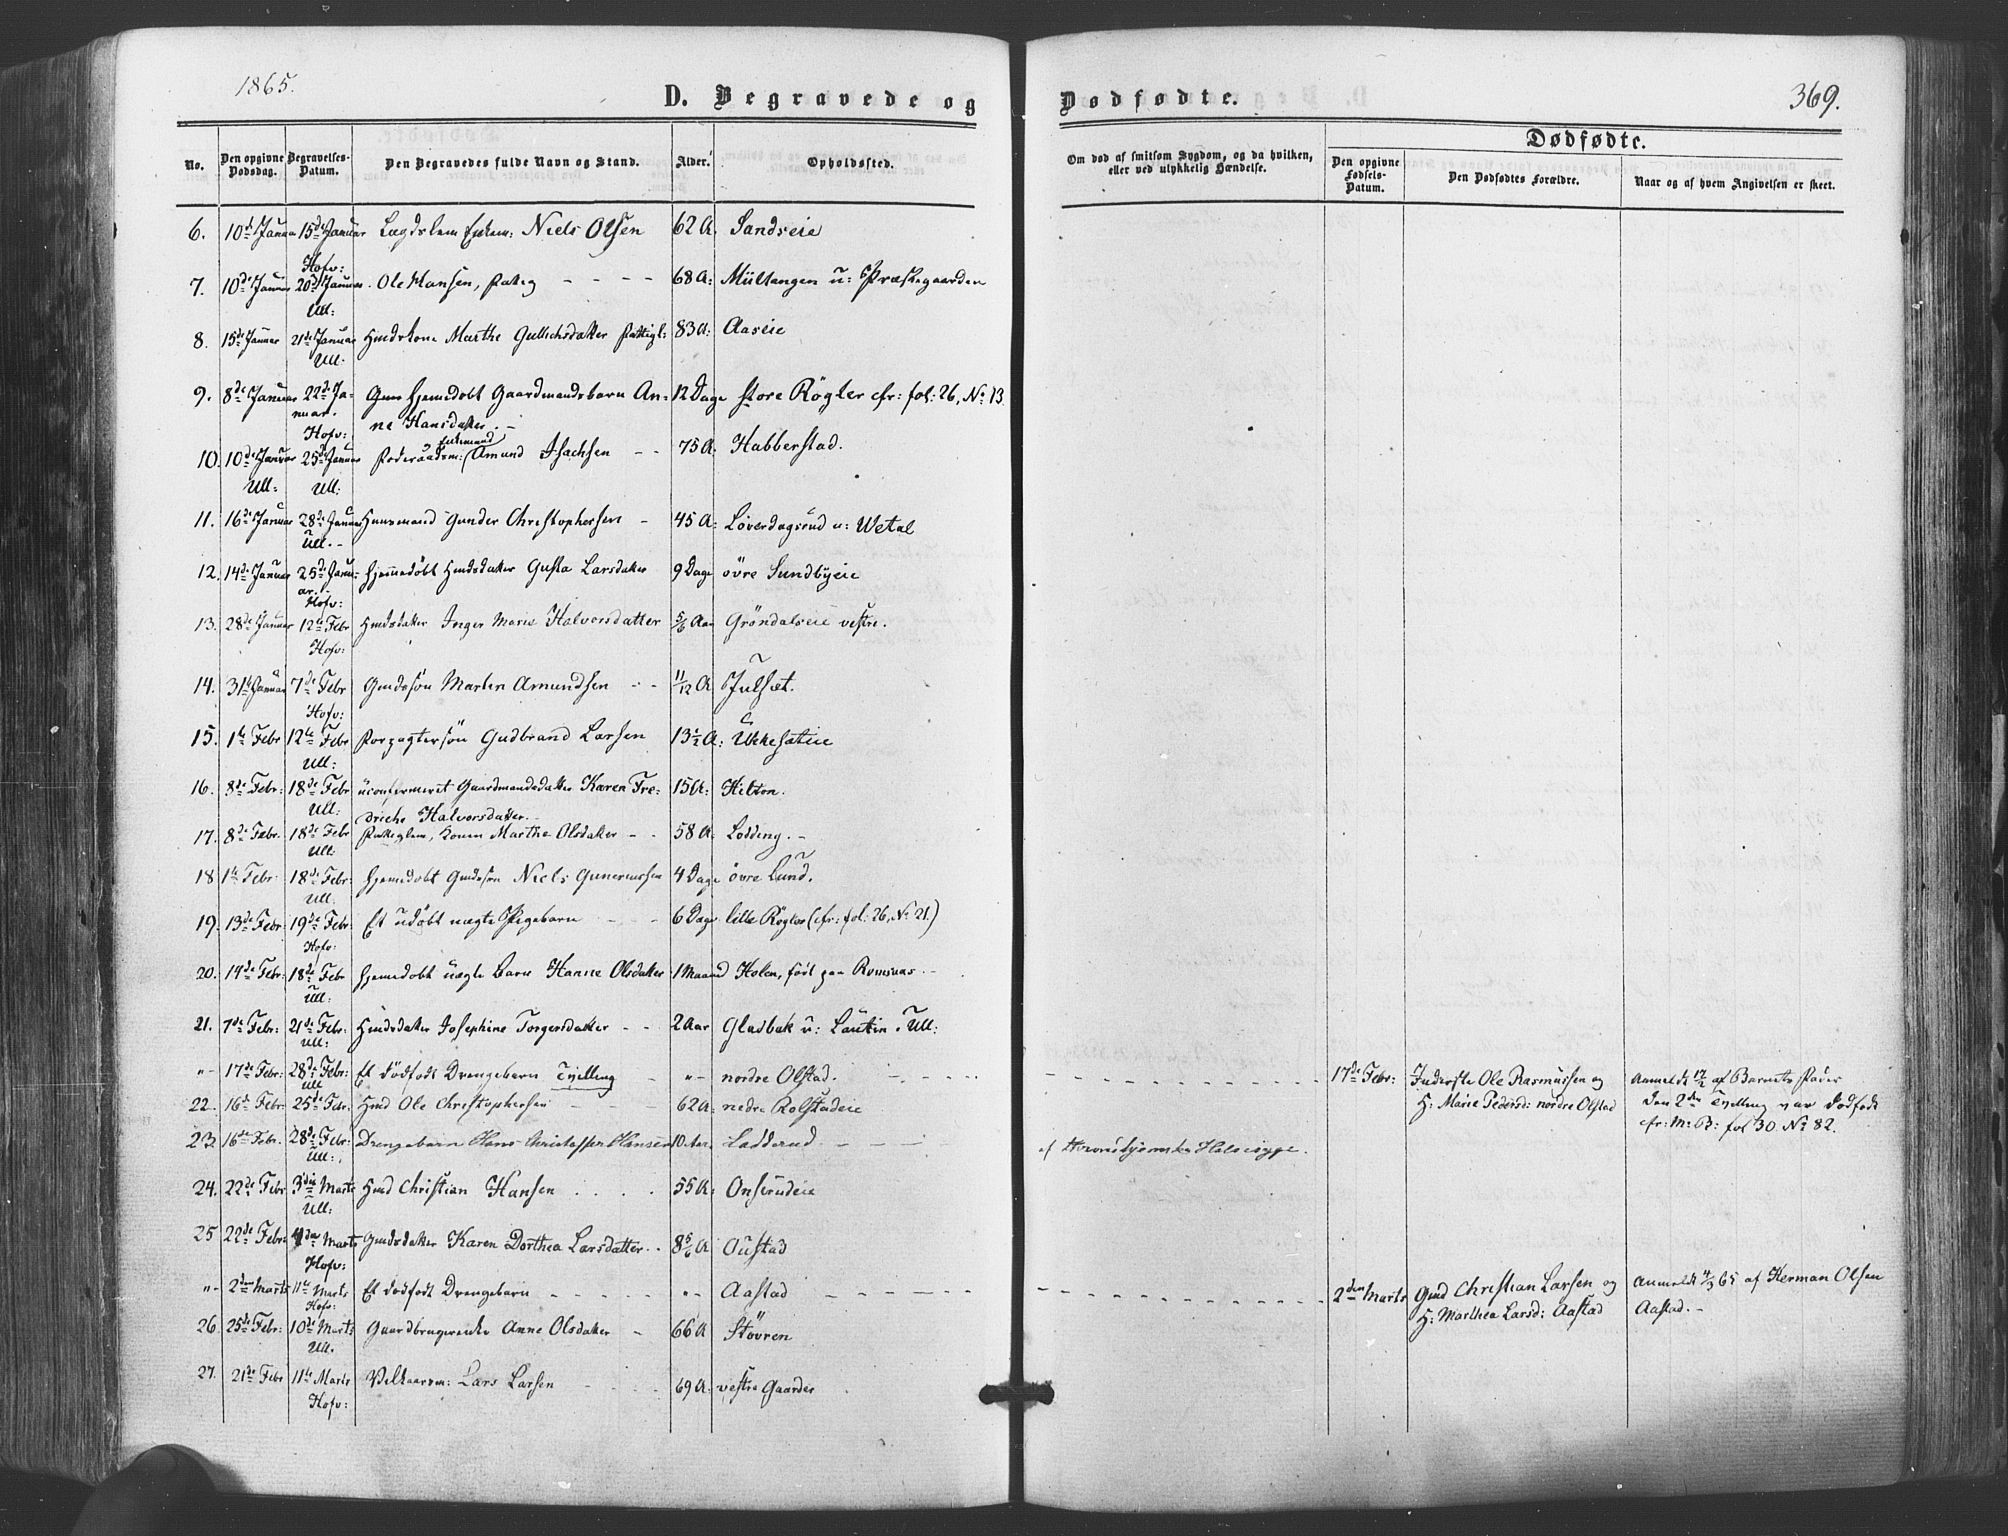 1865.
D. Begravede og Dødfødte.
369.
No.
Den opgivne Dødsdag.
Begravelses-Datum.
Den Begravedes fulde Navn og Stand.
Alder.
Opholdssted.
Om død af smitsom Sygdom, og da hvilken, eller ved ulykkelig Hændelse.
Dødfødte.
Den opgivne Fødsels-Datum.
Den Dødfødtes Forældre.
Naar og af hvem Angivelsen er skeet.
6. 10de Januar 15de Januar Lægdslem Enkem: Niels Olsen 62 A. Sandseie
Hofv:
7. 10de Januar 20de Januar Ole Hansen, fattig 68 A: Miiltangen u: Præstegaarden
Ull:
8. 15de Januar 21de Januar Hmdskone Marthe Gulichsdatter Fattigl: 83 A: Aaseie
Ull.
9. 8de Januar 22de Ja- Hjemedøbt Gaardmandsbarn An- 12 Dage store Rögler cfr: fol: 26, No 13.
nuar. ne Hansdatter. -
Hofv:
10. 10de Januar 25de Januar Foderaadsm: Enkemand Amund Isachsen 75 A. Habberstad.
Ull: Ull:
11. 16de Januar 28de Januar Huusmand Gunder Christophersen 45 A: Löverdagsrud u: Wetal
Ull. -
12. 14de Januar 25de Janu- Hjemmedöbt Hmdsdatter Gusta Larsdatter 9 Dage övre Sundbyeie
ar.
Hofv:
13. 28de Januar 12te Febr Hmdsdatter Inger Marie Halvorsdatter 5/6 Aar Gröndalseie vestre.
Hofv:
14. 31te Januar 7de Febr Gmdssön Martin Amundsen 11/12 A Julset.
Hofv:
15. 1te Febr 12te Febr Forpagtersön Gudbrand Larsen 13 1/2 A: Ukkesateie
Ull:
16. 8de Febr: 18de Febr uconfirmeret Gaardmandsdatter Karen Fre- 15 A: Hilton.
Ull: driche Halvorsdatter. -
17. 8de Febr: 18de Febr Fattiglem, Konen Marthe Olsdatter 58 A: Lodding. -
Ull:
18 1te Febr. 18de Febr: Hjemedøbt Gmdssön Niels Gunerussen 4 Dage övre Lund.
Ull.
19. 13de Febr: 19de Febr: Et udöbt uægte Pigebarn 6 Dage lille Rögler (cfr: fol: 26, No 21.)
Hofv:
20. 14de Febr: 18de Febr Hjemedøbt uægte Barn Hanne Olsdatter 1 Maaned Holen, född paa Romsaas. -
Ull:
21. 7de Febr: 21de Febr: Hmdsdatter Josephine Torgersdatter 2 Aar Gladbak u: Lautin. Ull:
Ull:
"- 17de Febr: 28de Febr: Et dödfødt Drengebarn Tvilling "- nordre Olstad. 17de Febr: Inderste Ole Rasmussen og Anmeldt 17/2 af Barnets Fader
Ull H: Marie Pedersd: nordre Olstad Den 2den Tvilling var dödfødt
22. 16de Febr 25de Febr. Hmd Ole Christophersen 62 A: nedre Rolstadeie cfr: M: B: fol 30 No 82.
23. 16de Febr. 28de Febr: Drengebarn Hans Christoffer Hansen 10 Aar. Ladderud af Halssyge.
Ull:
24. 22de Febr 3die Marts Hmd Christian Hansen 55 A: Onsrudeie
Ull:
25 22de Febr: 4de Marts Gmdsdatter Karen Dorthea Larsdatter 8 5/6 A Oustad
Hofv:
"- 2den Marts 11te Marts Et dödfødt Drengebarn "- Aastad 2den Marts Gmd Christian Larsen og Anmeldt 4/3 65 af Herman Olsen
Hofv: H: Marthea Larsd: Aastad Aastad. -
26. 25de Febr: 10de Marts Gaardbrugerenke Anne Olsdatter 66 A Stövren
Ull.
27. 21de Febr 11te Marts Vilkaarsm: Lars Larsen 69 A: vestre Gaarder
Hofv: